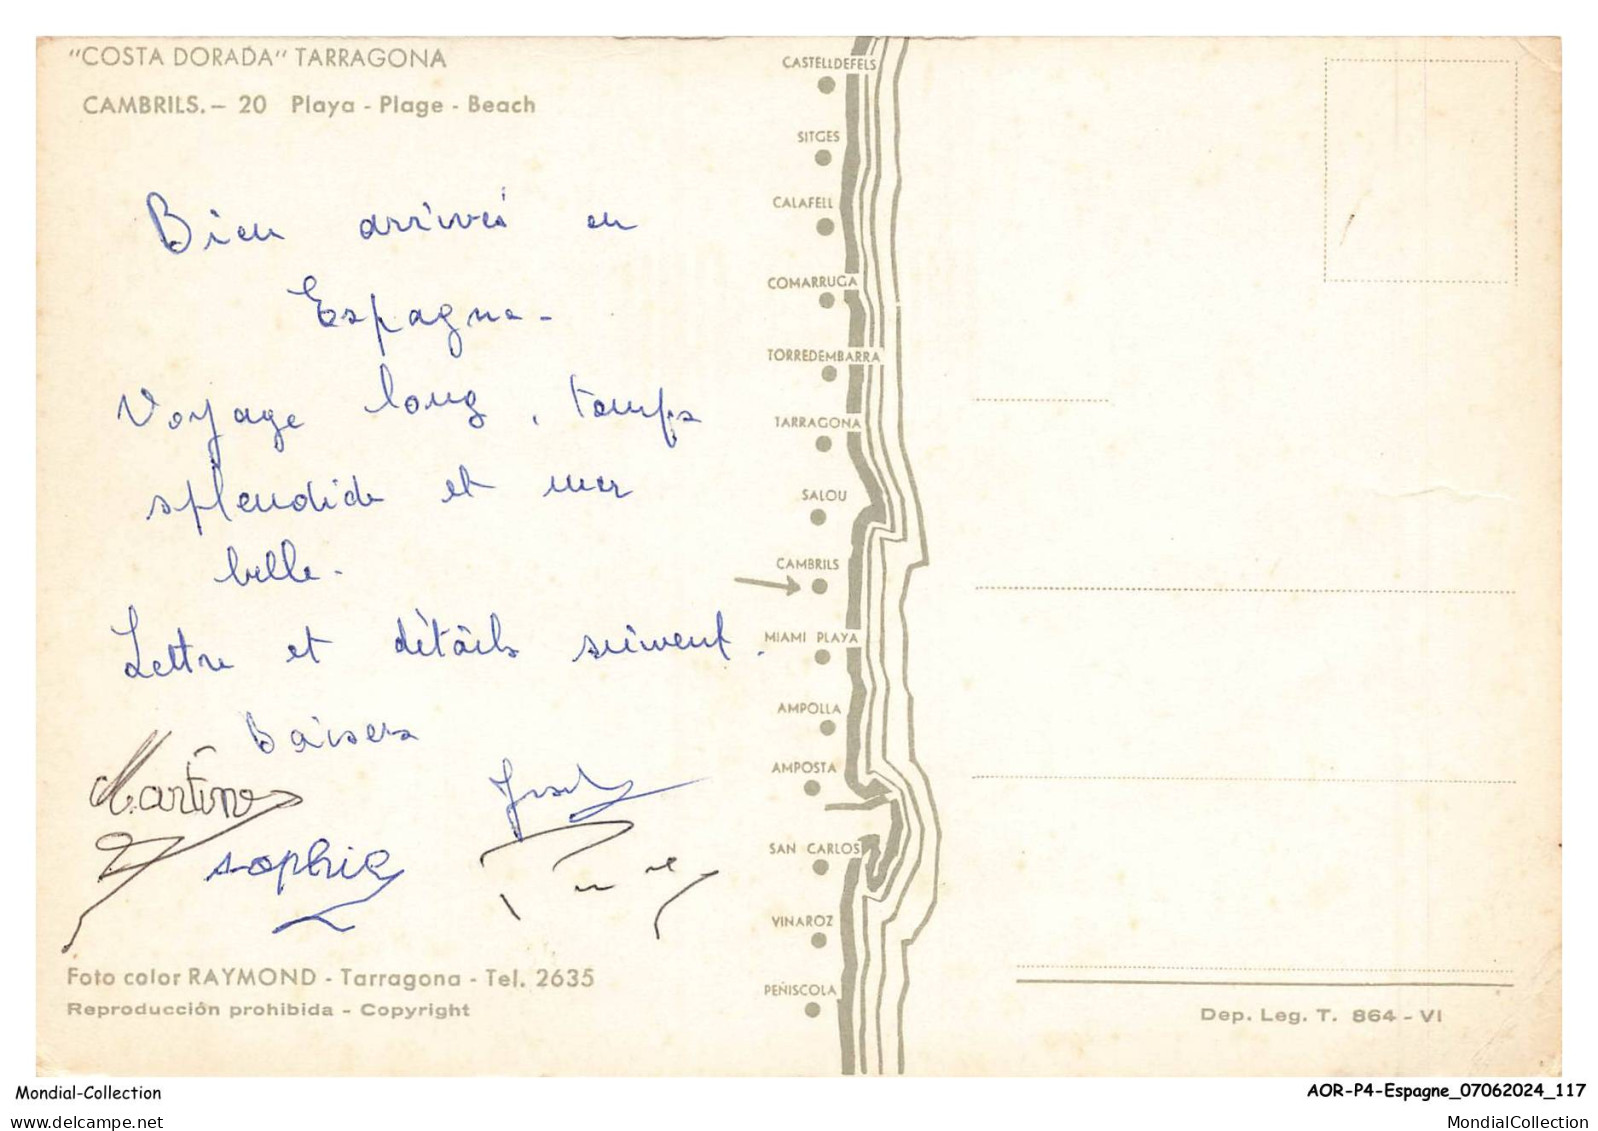 "COSTA DORADA" TARRAGONA
CAMBRILS.– 20 Playa - Plage - Beach
Bien arrivés en
Espagne -
Voyage long, temps
splendide et mer
belle -
Lettre et détails suivent.
Baisers
Martine
sophie
Foto color RAYMOND - Tarragona - Tel. 2635
Reproducción prohibida - Copyright
CASTELLDEFELS
SITGES
CALAFELL
COMARRUGA
TORREDEMBARRA
TARRAGONA
SALOU
CAMBRILS
MIAMI PLAYA
AMPOLLA
AMPOSTA
SAN CARLOS
VINAROZ
PEÑISCOLA
Dep. Leg. T. 864 - VI
Mondial-Collection
www.delcampe.net
AOR-P4-Espagne_07062024_117
MondialCollection